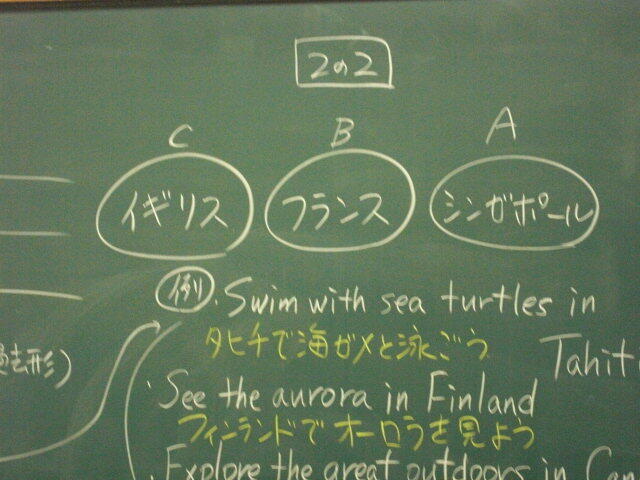 2の2
C B A
イギリス フランス シンガポール
例 ・Swim with sea turtles in
Tahiti
タヒチで海ガメと泳ごう
・See the aurora in Finland
フィンランドでオーロラを見よう
・Explore the great outdoors in
去形)